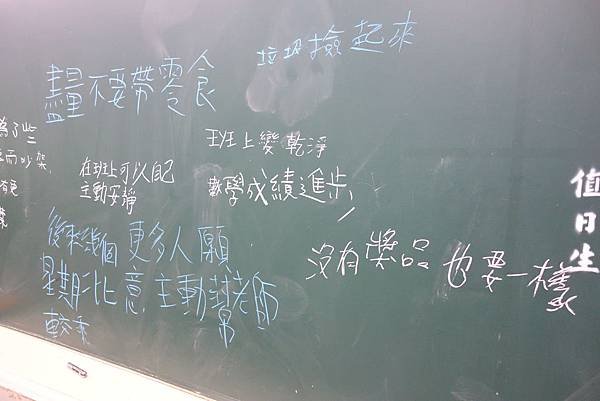 垃圾撿起來
儘量不要帶零食
班上變乾淨
為了些
而吵架
在班上可以自己
主動安靜
數學成績進步
值日生
後來幾個
星期比
較乖
更多人願
意主動幫老師
沒有獎品也要一樣